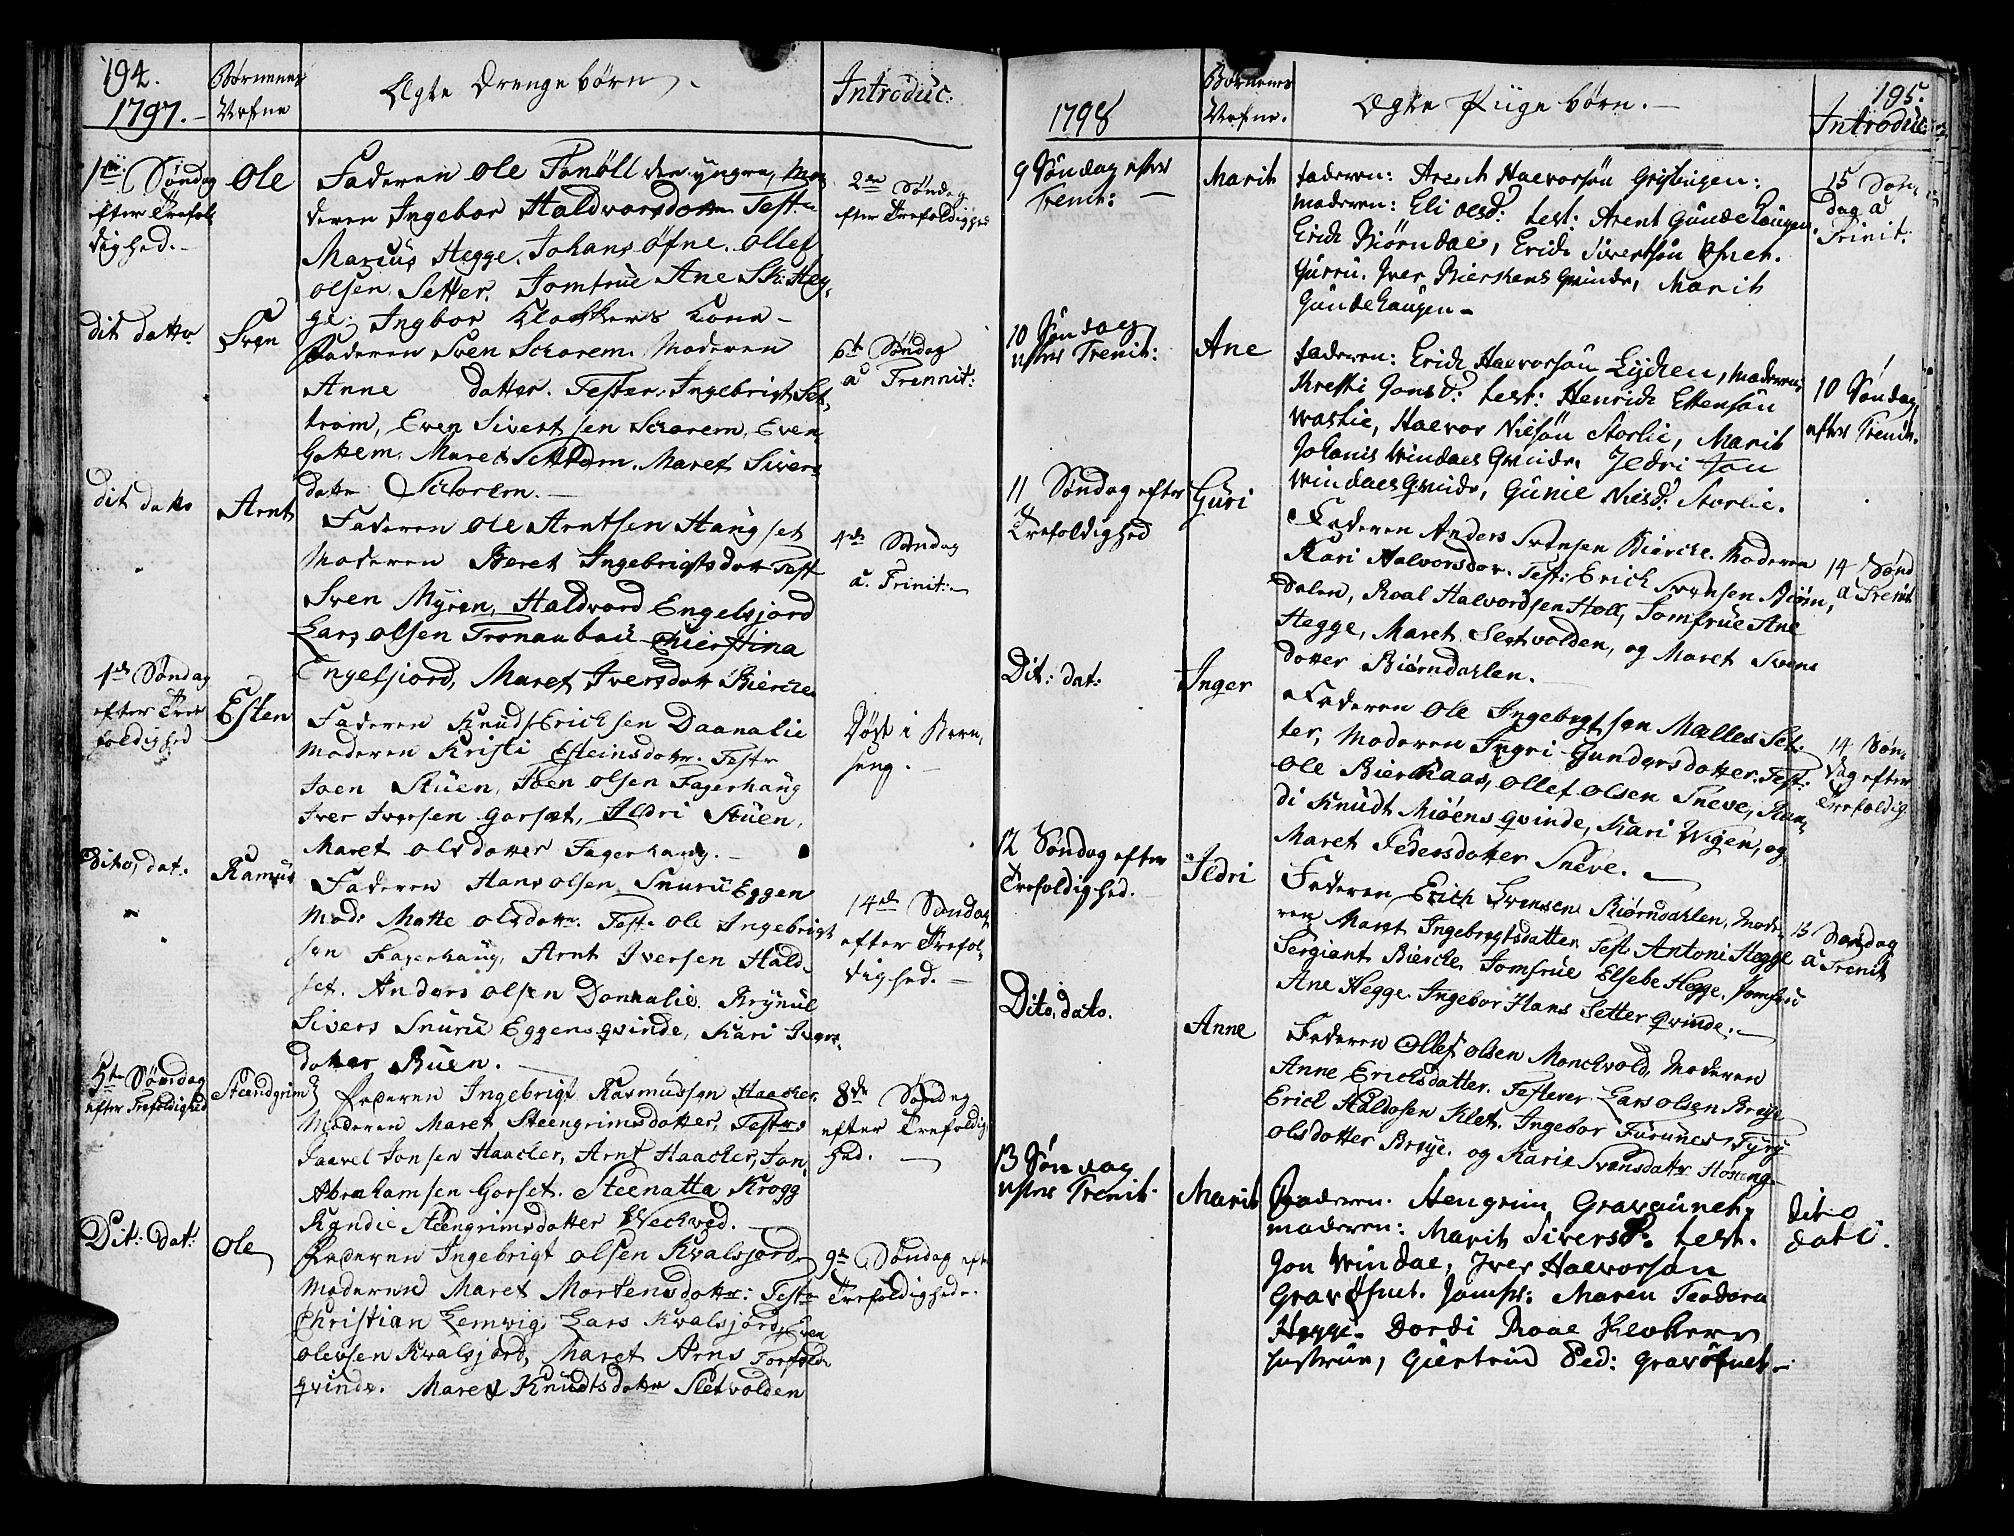 194.
1797.
Børnenes
Nafne
Ægte Drenge børn
Introduc:
1te Søndag
efter Trefol
dighed.
Ole
Faderen Ole Tonöll den yngre, Mo
deren Ingebor Haldvorsdotter Test
Marcus Hegge, Johans Øfne. Ollef
olsen Setter. Jomfrue Ane Sk: Heg
ge, Ingbor Klockers Kone
2en Søndag
efter Trefoldigged
dit datto
Sven
Faderen Sven Schorem. Moderen
Anne datter. Tester. Ingebrigt Set
trom, Even Sivertsen Schorem, Even
Gottem. Maret Settrom. Maret Sivers
datter Schorem.
6te Søndag
a Trennit:
dit datto
Arnt
Faderen Ole Arntsen Haugset
Moderen Beret Ingebrigtsdott Test
Sven Myren, Haldvord Engelsjord
Lars olsen Tronaubak Chierstina
Engelsjord, Maret Iversdott Biercke
4de Søndag
a Trinit:
4de Søndag
efter Tree
foldighed
Esten
Faderen Knud Ericksen Daanalie
Moderen Kristi Esteinsdotter. Test
Joen Stuen, Joen olsen Fagerhaug
Iver Iversen Gorset, Ildri Stuen,
Maret olsdotter Fagerhaug.
Død i Barn
seng.
Dito, dat:
Rasmus
Faderen Hans olsen Snurueggen
Mod: Mette olsdotter. Test. Ole Ingebrigt
sen Fagerhaug, Arnt Iversen Hald
set. Anders olsen Donnalie. Rrynul
Sivers Snuru Eggens qvinde, Kari Ivers
dotter Buen.
14de Søndag
efter Trefol
dighed.
5te Søndag
efter Trefoldighed
Steendgrim
Faderen Ingebrigt Rasmussen Haacker
Moderen Maret Steengrimsdotter, Test
Paavel Jonsen Haacker, Arnt Haacker, Jon
Abrahamsen Gorset. Steenatta Krogg
Randie Steengrimsdotter Wechved.
8de Søndag
efter Trefoldig
hed.
Dit: dat:
Ole
Faderen Ingebrigt olsen Kvalsjord
Moderene Maret Mortensdotter: Test
Christian Lemvig Lars Kvalsjord, Even
olevsen Kvalsjord, Maret Arns
qvinde. Maret Knudtsdotter Sletvolden
9de Søndag eft
Trefoldighed.
1798
Børnenes
Nafne.
Ægte Piige børn.
195.
Introduc:
9 Søndag efter
Trenit:
Marit
faderen: Arent Halvorsøn Gristingen:
moderen: Eli olsd: test: Arent Gundehaugen
Erich Biørndal, Erich Sivertsøn Øfnet.
Gurru. Iver Bierckens Qvinde, Marit
Gundehaugen
15 Søn
dag a
Trinit:
10 Søndag
efter Trenit:
Ane
faderen: Erich Halvorsøn Lycken, moderen
Kresti Jonsd: test: Henrich Estensøn
Waslie, Halvor Nielsøn Storlie, Marit
Johanis Windals Qvinde. Ildri Jon
Windals Qvinde, Gunil Nilsd: Storlie.
10 Søndag
efter Trenit.
11 Søndag efter
Trefoldighed
Guri
Faderen Anders Svensen Biercke. Moderen
Kari Halvorsdor. Test: Erick Svensen Biørn
dalen, Roal Halvordsen Holl, Jomfrue Ane
Hegge, Maret Sletvolden, og Maret Svens
dotter Biørndahlen.
14 Sønd
a Trenit
Dit: dat:
Inger
Faderen Ole Ingebrigtsen Mælles Set
ter, Moderen Ingri Gundersdotter, Test:
Ole Bierkaas, Ollef olsen Sneve, Ran
di Knudt Miøens qvinde, Kari Wigen, og
Maret Pedersdotter Sneve.
14 Søn
dag efter
Trefoldig
12 Søndag efter
Trefoldighed.
Ildri
Faderen Erich Svensen Biørndahlen, Mode
ren Maret Ingebrigtsdatter. Test. Antoni Hegge
Sergiant Biercke. Jomfrue Elsebe Hegge. Jomfru
Ane Hegge. Ingebor Hans Setter qvinde.
15 Søndag
a Trenit
Dito, dato.
Anne
Faderen Ollef olsen Monchvold, Moderen
Anne Erichsdatter. Testerer Lars olsen Breye
Erick Haldosen Klet. Ingebor Furunes, Fyry
olsdotter Breye. og Karie Svensdatter Hoseng
13 Søndag
efter Trenit.
Marit
Faderen: Stengrim Gravaunet,
moderen: Marit Siversd: test.
Jon Windal, Iver Halvorsøn
Gravøfnet. Jomfr: Maren Teodora
Hegge. Dordi Roal Klockers
hustrue, Giertrud Ped: Gravøfnet.
dito
dati.